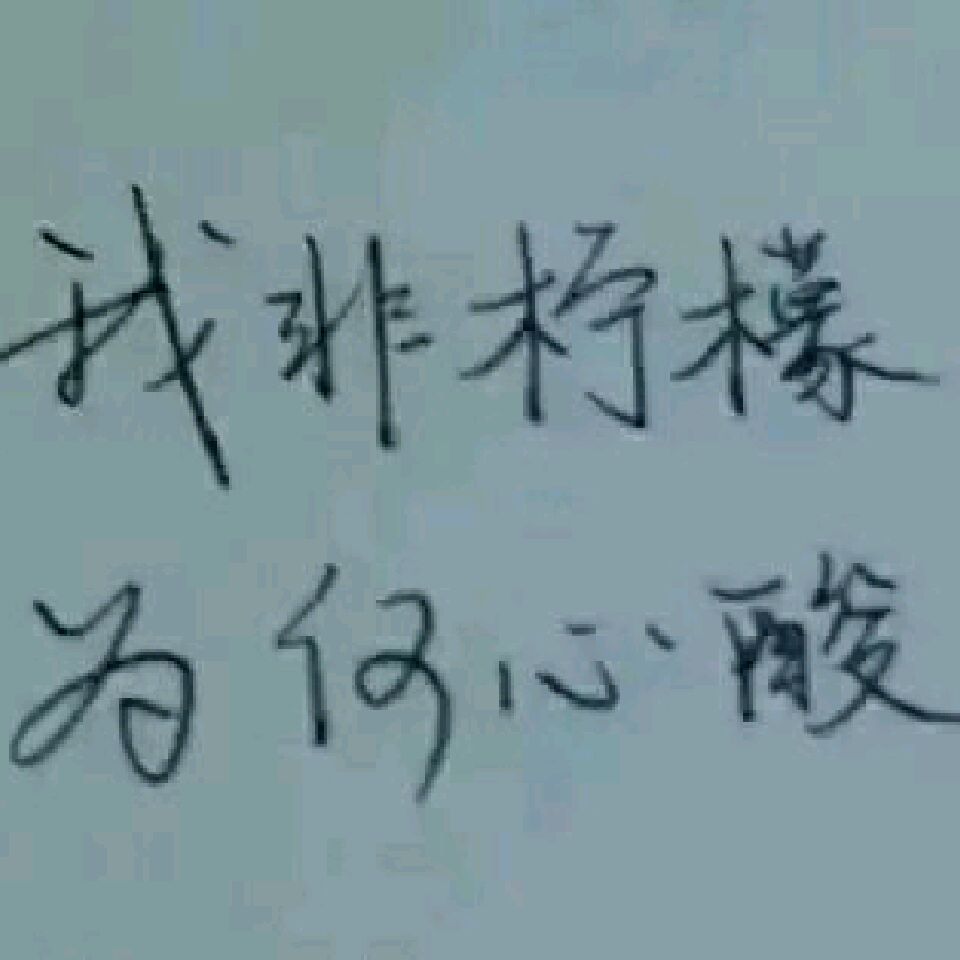 我非柠檬
为何心酸